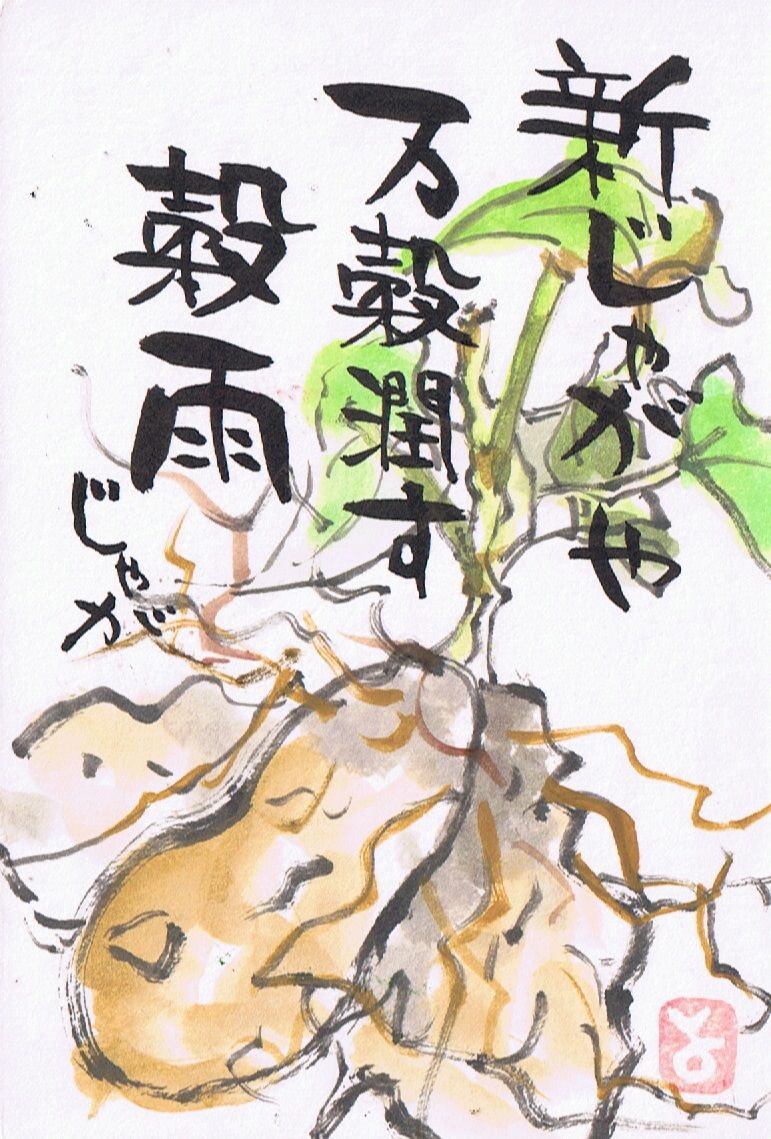 新じゃがや
万穀潤す
穀雨
じゃが
と